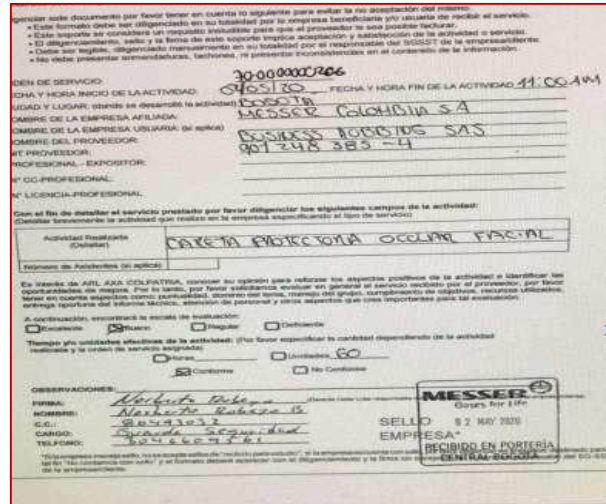 diligenciar este documento por favor tener en cuenta lo siguiente para evitar la no aceptación del mismo.
• Este formato debe ser diligenciado en su totalidad por la empresa beneficiaria y/o usuaria de recibir el servicio.
• Este soporte se considera un requisito ineludible para que el proveedor le sea posible facturar.
• El diligenciamiento, sello y la firma de este soporte implica aceptación y satisfacción de la actividad o servicio.
• Debe ser legible, diligenciado manualmente en su totalidad por el responsable del SGSST de la empresa/cliente.
• No debe presentar enmendaduras, tachones, ni presentar inconsistencias en el contenido de la información.
DEN DE SERVICIO:
CHA Y HORA INICIO DE LA ACTIVIDAD: 04/05/20 FECHA Y HORA FIN DE LA ACTIVIDAD 11:00AM
UDAD Y LUGAR: (donde se desarrolló la actividad) BOGOTA
OMBRE DE LA EMPRESA AFILIADA: MESSER COLOMBIA SA
OMBRE DE LA EMPRESA USUARIA: (si aplica)
OMBRE DEL PROVEEDOR: BUSINESS SAS
IT PROVEEDOR: 901248385-4
ROFESIONAL - EXPOSITOR:
N° CC-PROFESIONAL
N° LICENCIA-PROFESIONAL
Con el fin de detallar el servicio prestado por favor diligenciar los siguientes campos de la actividad:
(Detallar brevemente la actividad que realizo en la empresa especificando el tipo de servicio)
Actividad Realizada
(Detallar)
CARETA PROTECTORA OCULAR FACIAL
Número de Asistentes (si aplica)
Es interés de ARL AXA COLPATRIA, conocer su opinión para reforzar los aspectos positivos de la actividad e identificar las
oportunidades de mejora. Por lo tanto, por favor solicitamos evaluar en general el servicio recibido por el proveedor, por favor
tener en cuenta aspectos como: puntualidad, dominio del tema, manejo del grupo, cumplimiento de objetivos, recursos utilizados,
entrega oportuna del informe técnico, atención de personal y otros aspectos que crea importantes para tal evaluación.
A continuación, encontrará la escala de evaluación:
Excelente Bueno Regular Deficiente
Tiempo y/o unidades efectivas de la actividad: (Por favor especificar la cantidad dependiendo de la actividad
realizada y la orden de servicio asignada)
Horas Unidades 60
Conforme No Conforme
OBSERVACIONES:
FIRMA: Norberto
NOMBRE: Norberto B
C.C.: 80493032
CARGO: Guarda Seguridad
TELEFONO:
MESSER
Gases for Life
SELLO
EMPRESA*
02 MAY 2020
RECIBIDO EN PORTERÍA
CENTRAL BOGOTÁ